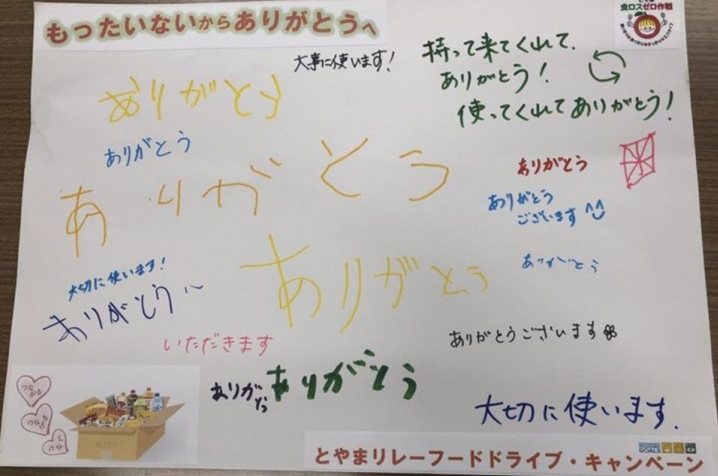 もったいないからありがとうへ
食ロスゼロ作戦
大事に使います!
持って来てくれて、
ありがとう!
使ってくれてありがとう!
ありがとう
ありがとう
ありがとう
ありがとう
ありがとう
ございます^^
ありがとう
ありがとう
大切に使います!
ありがとう〜
いただきます
ありがとうございます
ありがとう
ありがとう
大切に使います.
つながる
とやまリレーフードドライブ・キャンペーン